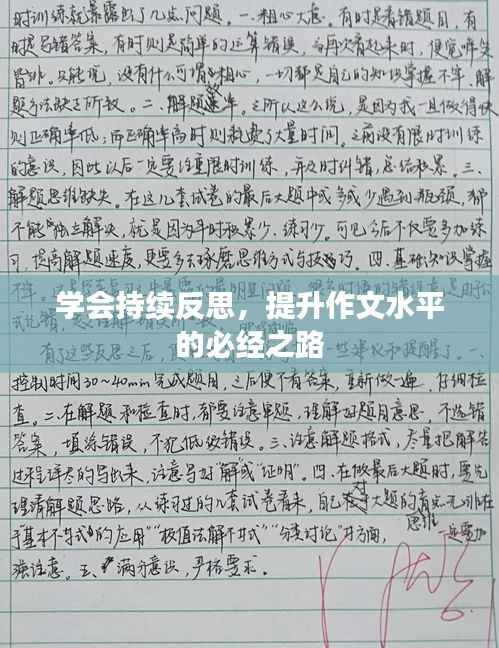 时训练就暴露出了几点问题。一、粗心大意。有时是看错题目,有
时是写错答案,有时则是简单的运算错误,每次看起来时,便觉啼笑
皆非。只能说,没有什么可谓的粗心,一切都是自己的知识掌握不牢、解
题方法缺乏所致。二、解题速率。之所以这么说,是因为我一旦做得快
则正确率低;而正确率高时则耗费了大量时间。之前没有限时训练
的意识,因此以后一定要注重限时训练,并及时纠错,总结积累。三、
解题思维缺失。在这几套试卷的最后大题中或多或少遇到瓶颈,都
不能独立解决,就是因为平时积累少、练习少。可见今后不仅要多加练
习,提高解题速度,更要多去琢磨思维方式与技巧。四、基础知识掌握
学会持续反思,提升作文水平
的必经之路
有了这些反思之后,
控制时间30~40min完成题目,之后便不看答案,重新做一遍,仔细检
查。二、在解题和检查时,都要注意审题,理解好题目意思,不选错
答案,填涂错误,不犯低级错误。三、注意解题格式,尽量把解答
过程详尽的写出来,注意写好"解"或"证明"。四、在做最后大题时,要先
理清解题思路,从练习过的几套试卷看来,自己在大题的
于"基本不等式的应用""极值法解不等式""分类讨论"等方面,
思维
一定要加
强注意。五、满分意识,严格要求。